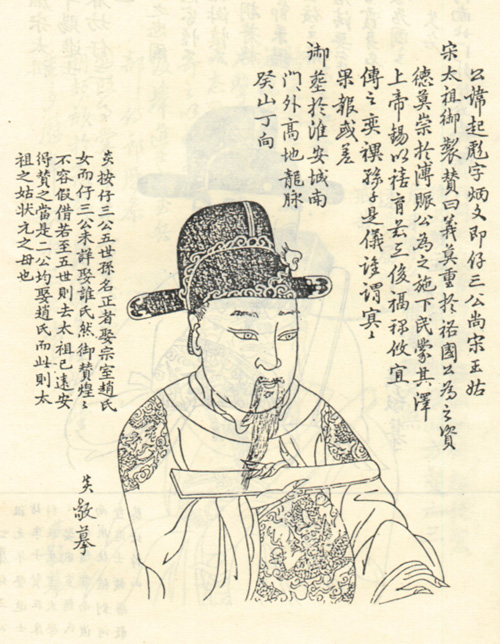 公諱起彪字炳文即仔三公尚宋王姑
宋太祖御製贊曰義莫重於裕國公為之資
德莫崇於溥賑公為之施下民蒙其澤
上帝錫以禧育三俊福祿攸宜
傳之奕禩孫子是儀誰謂冥〻
果報或差
御塋於淮安城南
門外高地龍脉
癸山丁向
炎按仔三公五世孫名正者娶宗室趙氏
女而仔三公未詳娶誰氏然御贊煌〻
不容假借若至五世則去太祖已遠安
得贊之當是二公均娶趙氏而此則太
祖之姑狀元之母也
炎敬摹